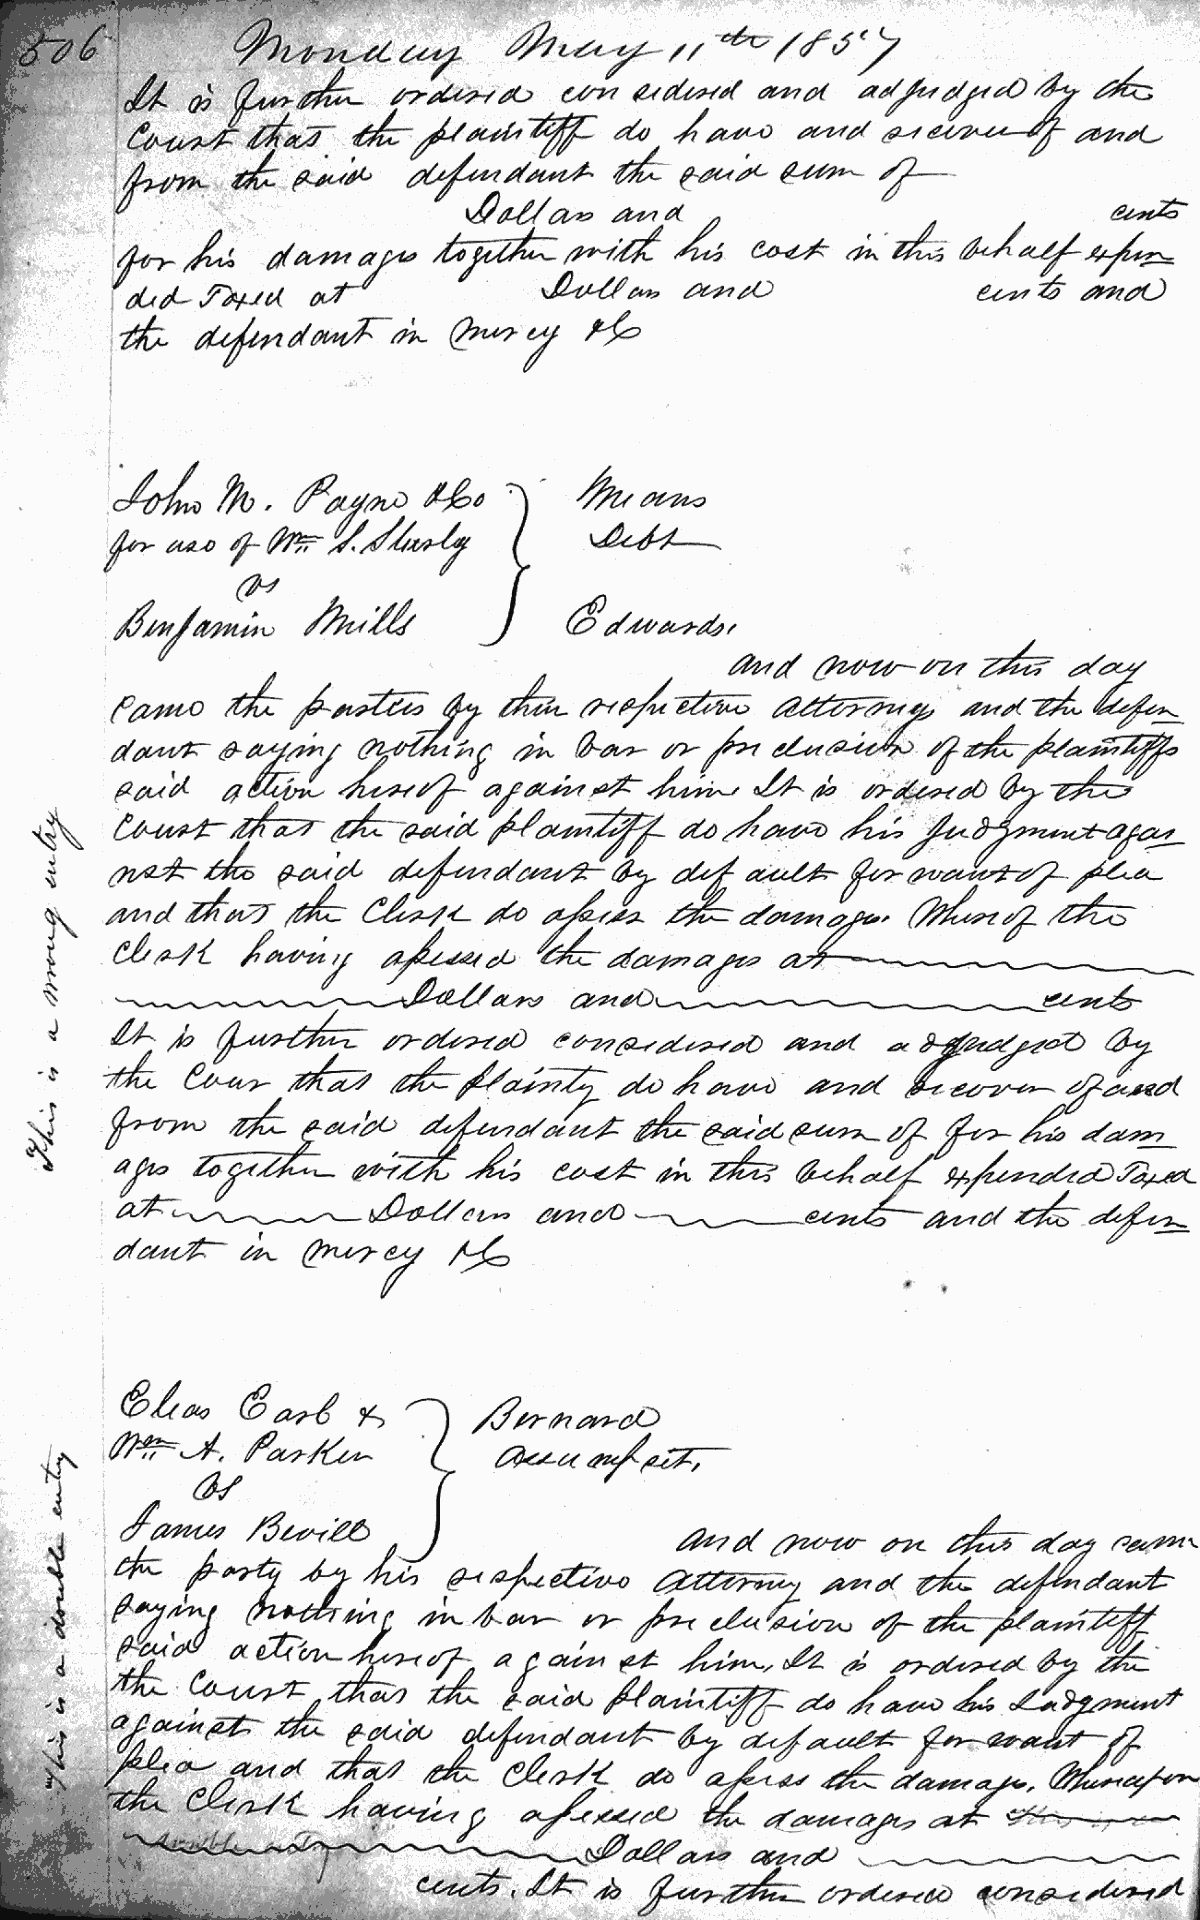 506 Monday May 11th 1857
It is further ordered considered and adjudged by the
Court that the plaintiff do have and recover of and
from the said defendant the said sum of
Dollars and cents
for his damages together with his cost in this behalf expen
ded Taxed at Dollars and cents and
the defendant in mercy &c
John M. Payne & Co } Means
for use of Wm S. Debt
vs
Benjamin Mills Edwards.
and now on this day
came the parties by their respective attorneys and the defen
dant saying nothing in bar or preclusion of the plaintiffs
said action hereof against him. It is ordered by the
Court that the said plaintiff do have his Judgment agai
nst the said defendant by default for want of plea
and that the Clerk do assess the damages. Whereof the
Clerk having assessed the damages at
Dollars and cents
It is further ordered considered and adjudged by
the Cour that the plainty do have and recover of and
from the said defendant the said sum of for his dam
ages together with his cost in this behalf expended Taxed
at Dollars and cents and the defen
dant in mercy &c
This is a wrong entry
Elias Earl & } Bernard
Wm A. Parker assumpsit.
vs
James Bevill and now on this day came
the party by his respective attorney and the defendant
saying nothing in bar or preclusion of the plaintiff
said action hereof against him. It is ordered by the
the Court that the said plaintiff do have his Judgment
against the said defendant by default for want of
plea and that the Clerk do assess the damages. Whereupon
the Clerk having assessed the damages at
Dollars and
cents. It is further ordered considered
This is a double entry